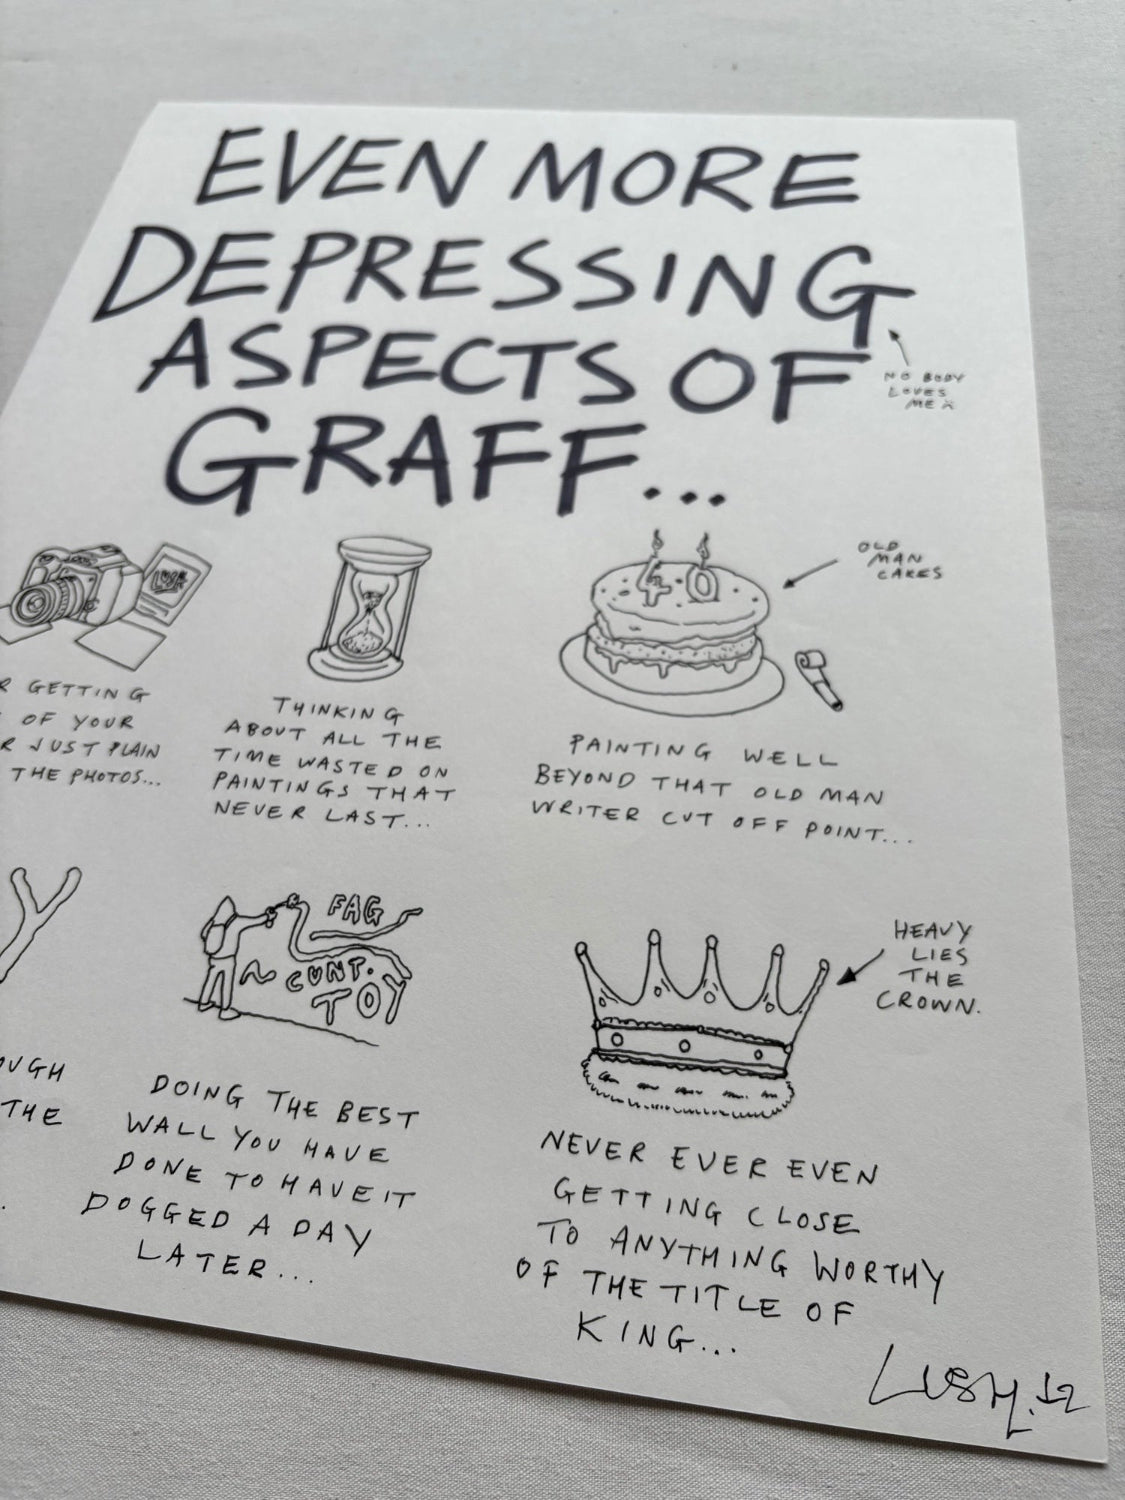 EVEN MORE
DEPRESSING
ASPECTS OF
GRAFF...
NO BODY
LOVES
ME X
LUSH
40
OLD
MAN
CAKES
R GETTING
OF YOUR
R JUST PLAIN
THE PHOTOS...
THINKING
ABOUT ALL THE
TIME WASTED ON
PAINTINGS THAT
NEVER LAST...
PAINTING WELL
BEYOND THAT OLD MAN
WRITER CUT OFF POINT...
Y
OUGH
THE
.
FAG
CUNT.
TOY
DOING THE BEST
WALL YOU HAVE
DONE TO HAVE IT
DOGGED A DAY
LATER...
HEAVY
LIES
THE
CROWN.
NEVER EVER EVEN
GETTING CLOSE
TO ANYTHING WORTHY
OF THE TITLE OF
KING...
LUSH.12